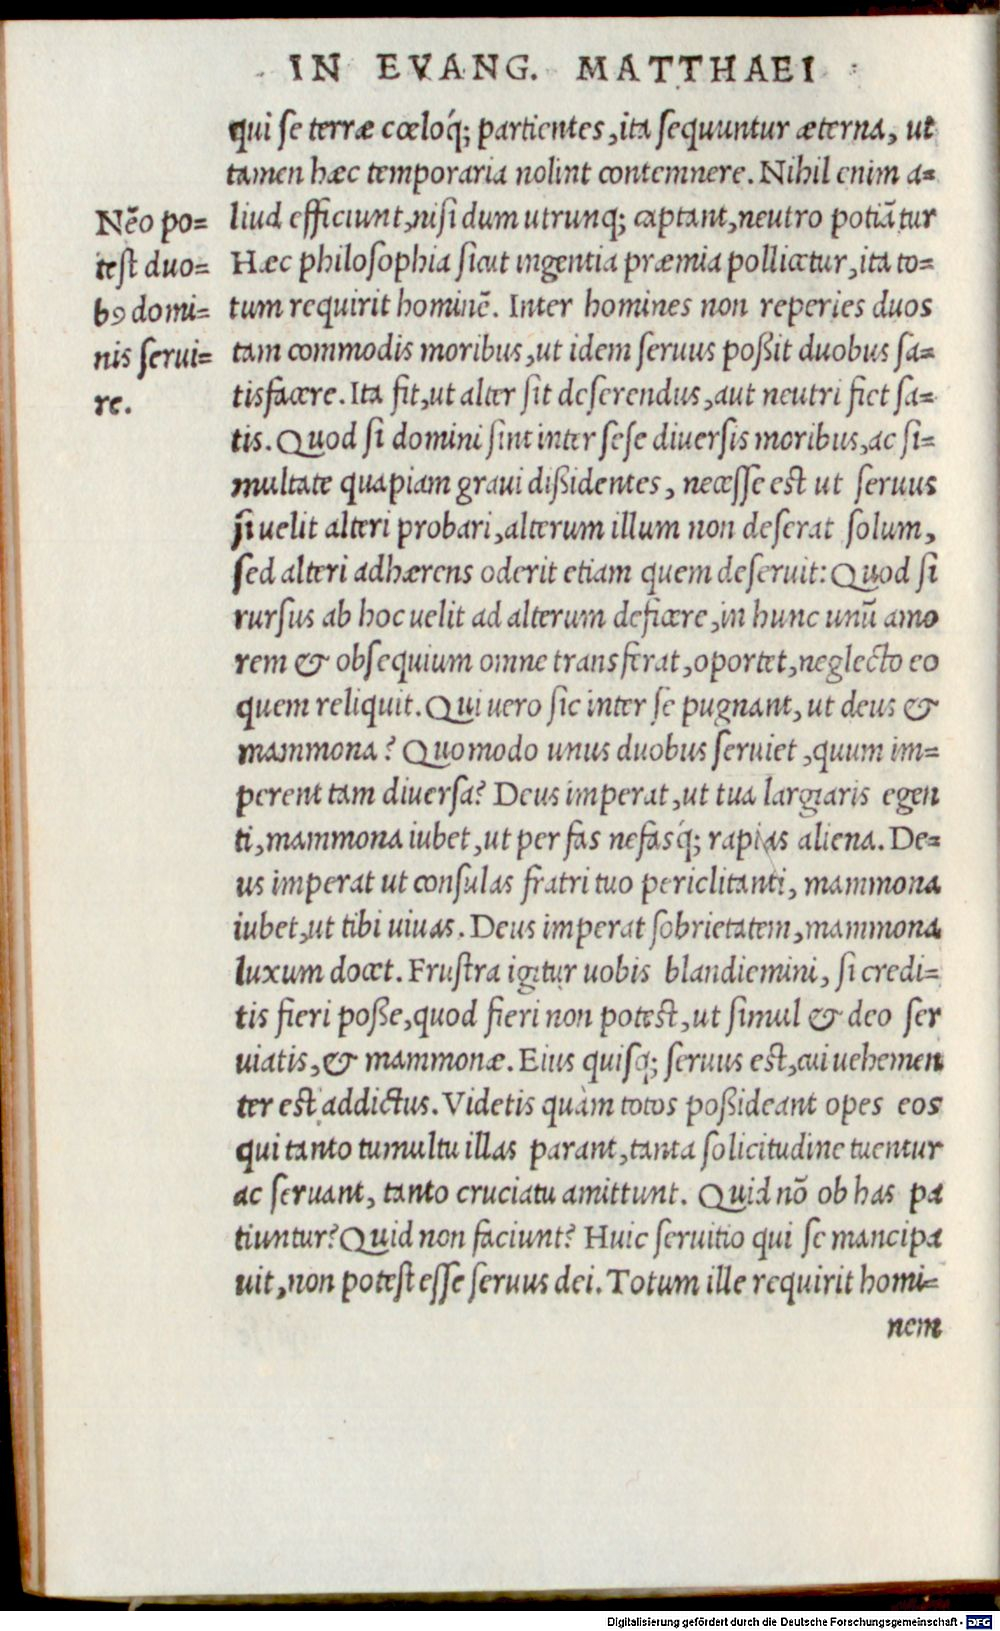 IN EVANG. MATTHAEI
qui se terræ cœloq́; partientes, ita sequuntur æterna, ut
tamen hæc temporaria nolint contemnere. Nihil enim a=
liud efficiunt, nisi dum utrunq; captant, neutro potiãtur
Hæc philosophia sicut ingentia præmia pollicetur, ita to=
tum requirit hominẽ. Inter homines non reperies duos
tam commodis moribus, ut idem seruus poßit duobus sa=
tisfacere. Ita fit, ut alter sit deserendus, aut neutri fiet sa=
tis. Quod si domini sint inter sese diuersis moribus, ac si=
multate quapiam graui dißidentes, necesse est ut seruus
si uelit alteri probari, alterum illum non deserat solum,
sed alteri adhærens oderit etiam quem deseruit: Quod si
rursus ab hoc uelit ad alterum deficere, in hunc unũ amo
rem & obsequium omne transferat, oportet, neglecto eo
quem reliquit. Qui uero sic inter se pugnant, ut deus &
mammona? Quomodo unus duobus seruiet, quum im=
perent tam diuersa? Deus imperat, ut tua largiaris egen
ti, mammona iubet, ut per fas nefasq́; rapias aliena. De=
us imperat ut consulas fratri tuo periclitanti, mammona
iubet, ut tibi uiuas. Deus imperat sobrietatem, mammona
luxum docet. Frustra igitur uobis blandiemini, si credi=
tis fieri poße, quod fieri non potest, ut simul & deo ser
uiatis, & mammonæ. Eius quisq; seruus est, cui uehemen
ter est addictus. Videtis quàm totos poßideant opes eos
qui tanto tumultu illas parant, tanta solicitudine tuentur
ac seruant, tanto cruciatu amittunt. Quid nõ ob has pa
tiuntur? Quid non faciunt? Huic seruitio qui se mancipa
uit, non potest esse seruus dei. Totum ille requirit homi=
nem
Nẽo po=
test duo=
bꝯ domi=
nis serui=
re.
Digitalisierung gefördert durch die Deutsche Forschungsgemeinschaft - DFG